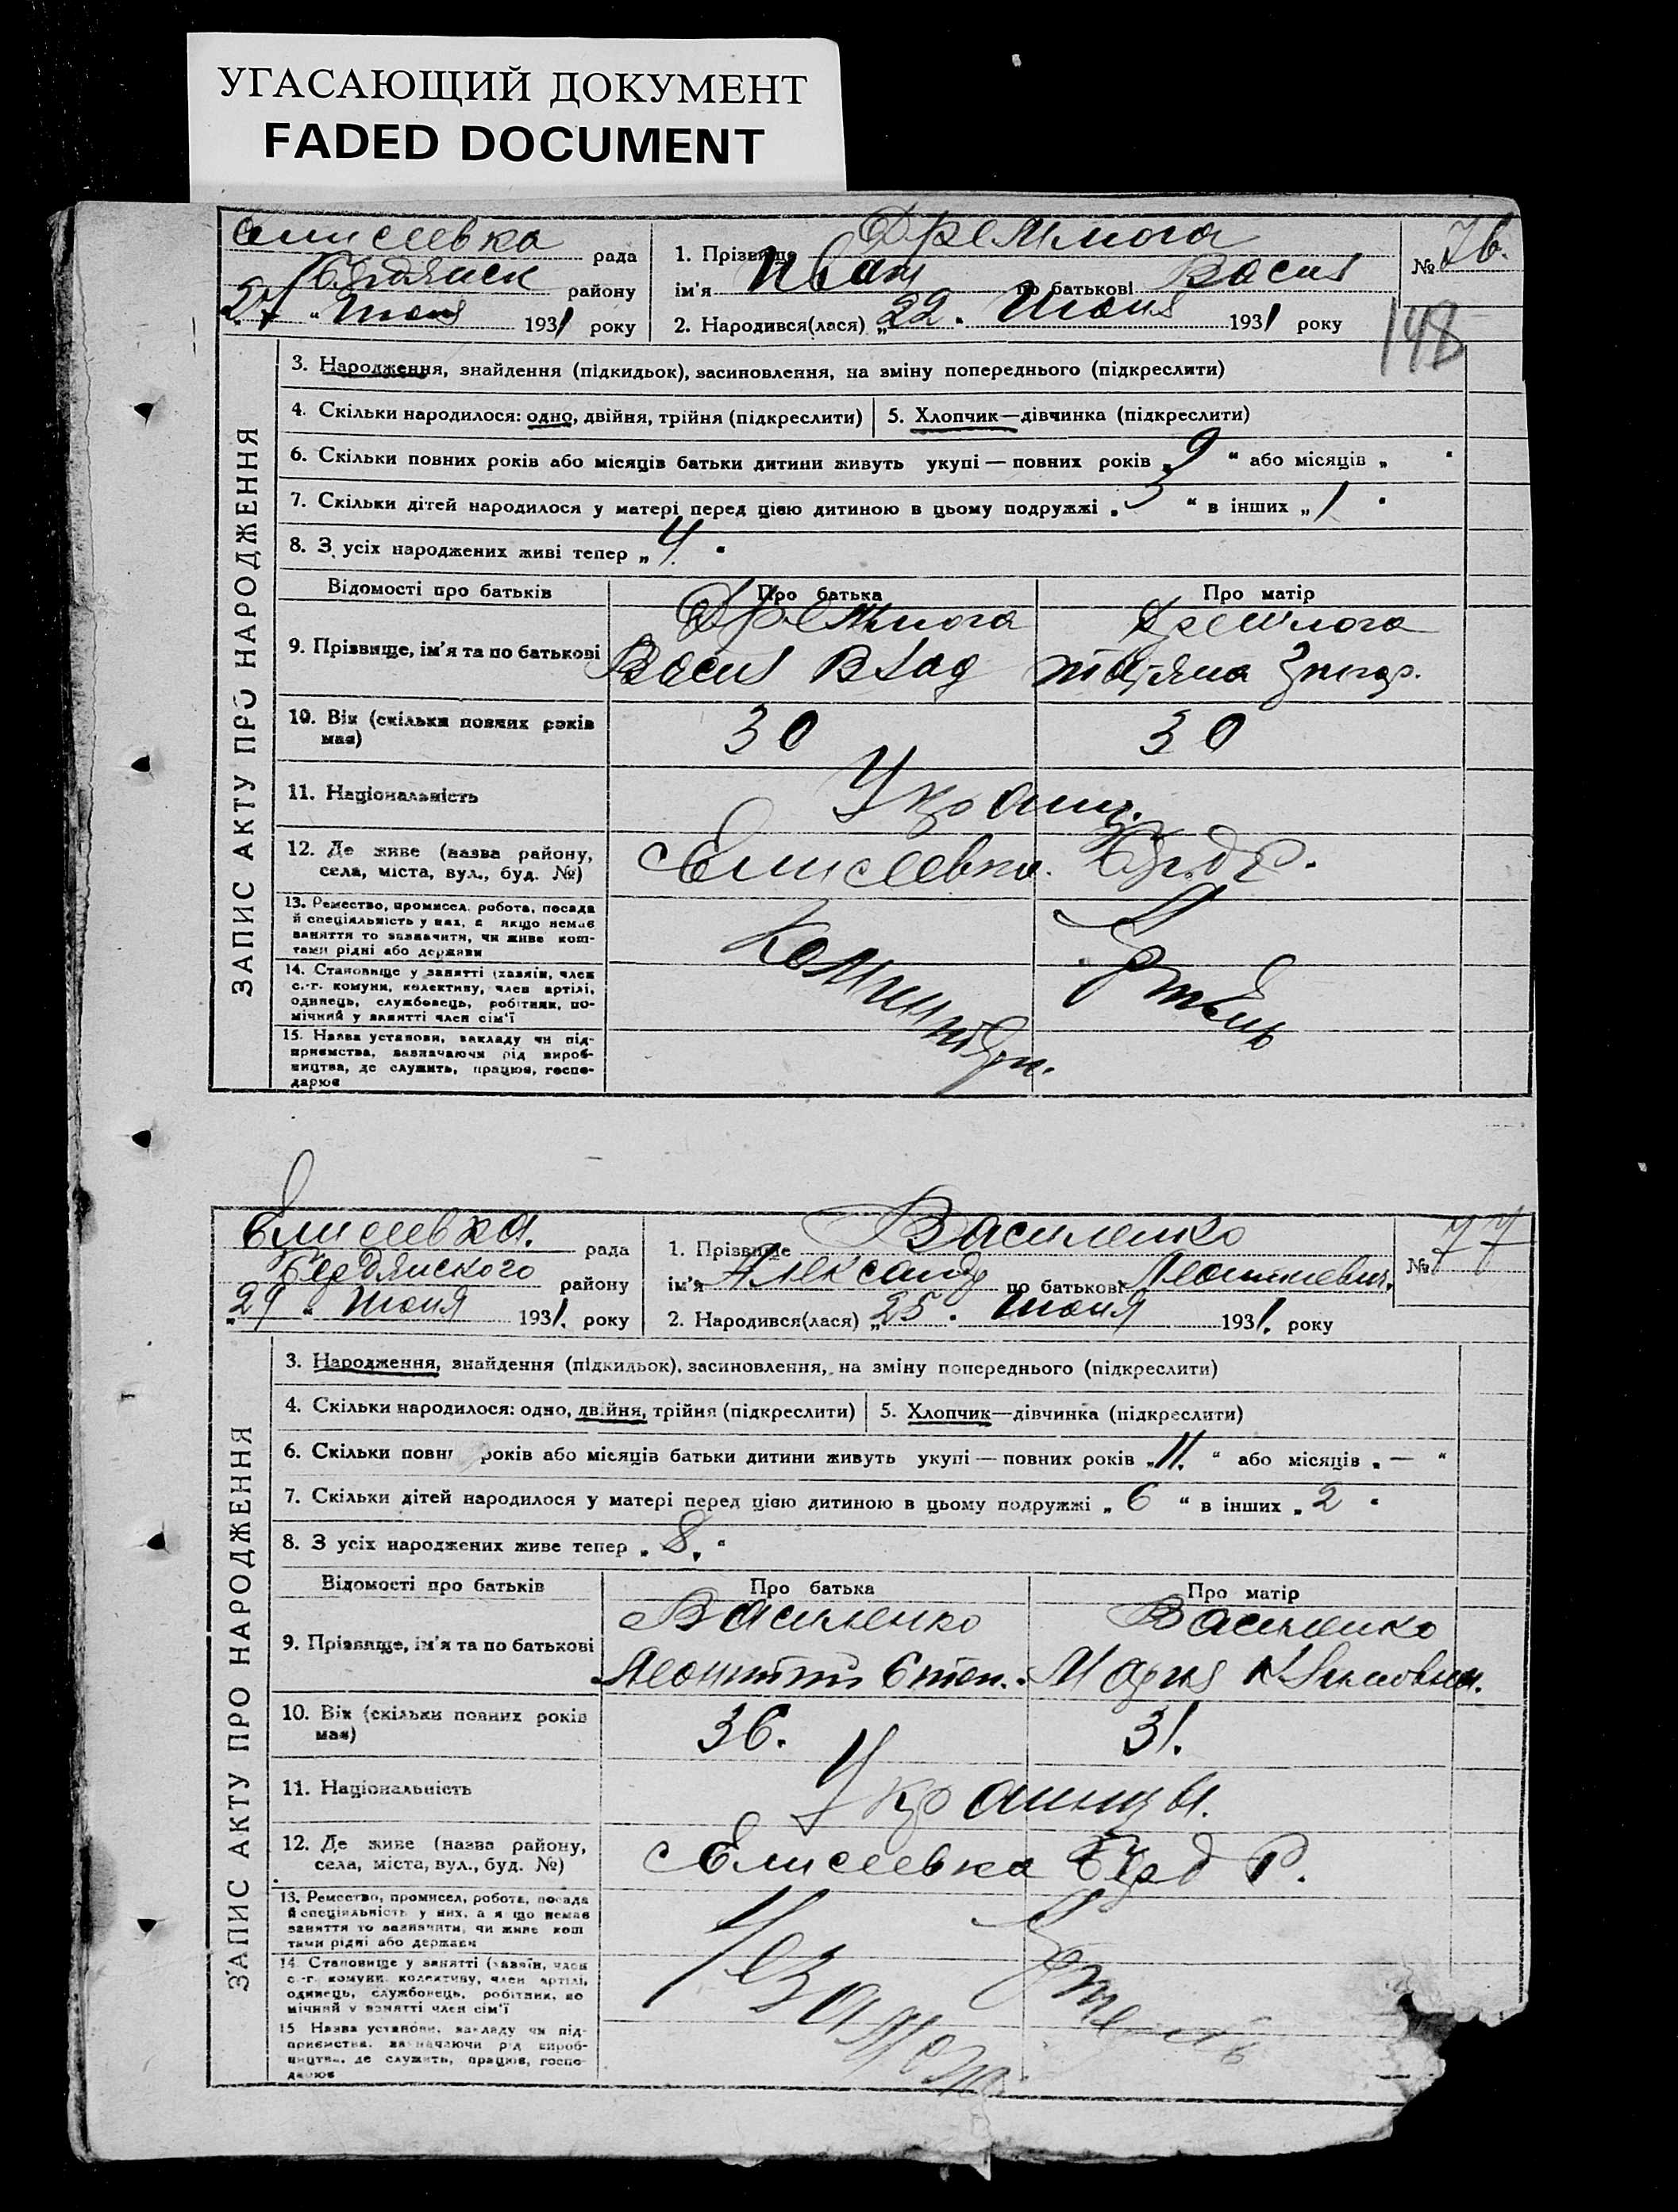 УГАСАЮЩИЙ ДОКУМЕНТ
FADED DOCUMENT
Елисеевка рада
Бердянск району
27 " Июня 1931 року
1. Прізвище Дремлюга
ім'я Иван по батькові Васил
2. Народився(лася) „22 " Июня 1931 року
№ 76.
148
ЗАПИС АКТУ ПРО НАРОДЖЕННЯ
3. Народження, знайдення (підкидьок), засиновлення, на зміну попереднього (підкреслити)
4. Скільки народилося: одно, двійня, трійня (підкреслити) 5. Хлопчик—дівчинка (підкреслити)
6. Скільки повних років або місяців батьки дитини живуть укупі — повних років „9 “ або місяців „ “
7. Скільки дітей народилося у матері перед цією дитиною в цьому подружжі „3 “ в інших „1 “
8. З усіх народжених живі тепер „4 “
Відомості про батьків Про батька Про матір
9. Прізвище, ім'я та по батькові
Дремлюга Дремлюга
Васил Влад Татяна
10. Вік (скільки повних років має) 30 30
11. Національність Украинц.
12. Де живе (назва району,
села, міста, вул., буд. №) Елисеевка. Берд Р.
13. Ремество, промисел, робота, посада
й спеціяльність у них, а якщо немає
заняття то зазначити, чи живе кош-
тами рідні або держави
14. Становище у занятті (хазяїн, член
с.-г. комуни, колективу, член артілі,
одинець, службовець, робітник, по-
мічний у занятті член сім'ї
15. Назва установи, закладу чи під-
приємства, зазначаючи рід вироб-
ництва, де служить, працює, госпо-
дарює
Елисеевка. рада
Бердянского району
„29 " Июня 1931. року
1. Прізвище Василенко
ім'я Александр по батькові Леонтиевич.
2. Народився(лася) „25 " Июня 1931. року
№ 77
ЗАПИС АКТУ ПРО НАРОДЖЕННЯ
3. Народження, знайдення (підкидьок), засиновлення, на зміну попереднього (підкреслити)
4. Скільки народилося: одно, двійня, трійня (підкреслити) 5. Хлопчик—дівчинка (підкреслити)
6. Скільки повни років або місяців батьки дитини живуть укупі — повних років „11. “ або місяців „ — “
7. Скільки дітей народилося у матері перед цією дитиною в цьому подружжі „ 6 “ в інших „ 2 “
8. З усіх народжених живе тепер „ 8. “
Відомості про батьків Про батька Про матір
9. Прізвище, ім'я та по батькові
Василенко Василенко
Леонтий Степ. Мария Климовна.
10. Вік (скільки повних років має) 36. 31.
11. Національність Украинцы.
12. Де живе (назва району,
села, міста, вул., буд. №) Елисеевка Берд Р.
13. Ремество, промисел, робота, посада
й спеціяльність у них, а я що немає
заняття то зазначити, чи живе кош
тами рідні або держави
14. Становище у занятті (хазяїн, член
с.-г. комуни, колективу, член артілі,
одинець, службовець, робітник, по
мічний у занятті член сім'ї
15 Назва установи, закладу чи під-
приємства, зазначаючи рід вироб-
ництва, де служить, працює, госпо-
дарює